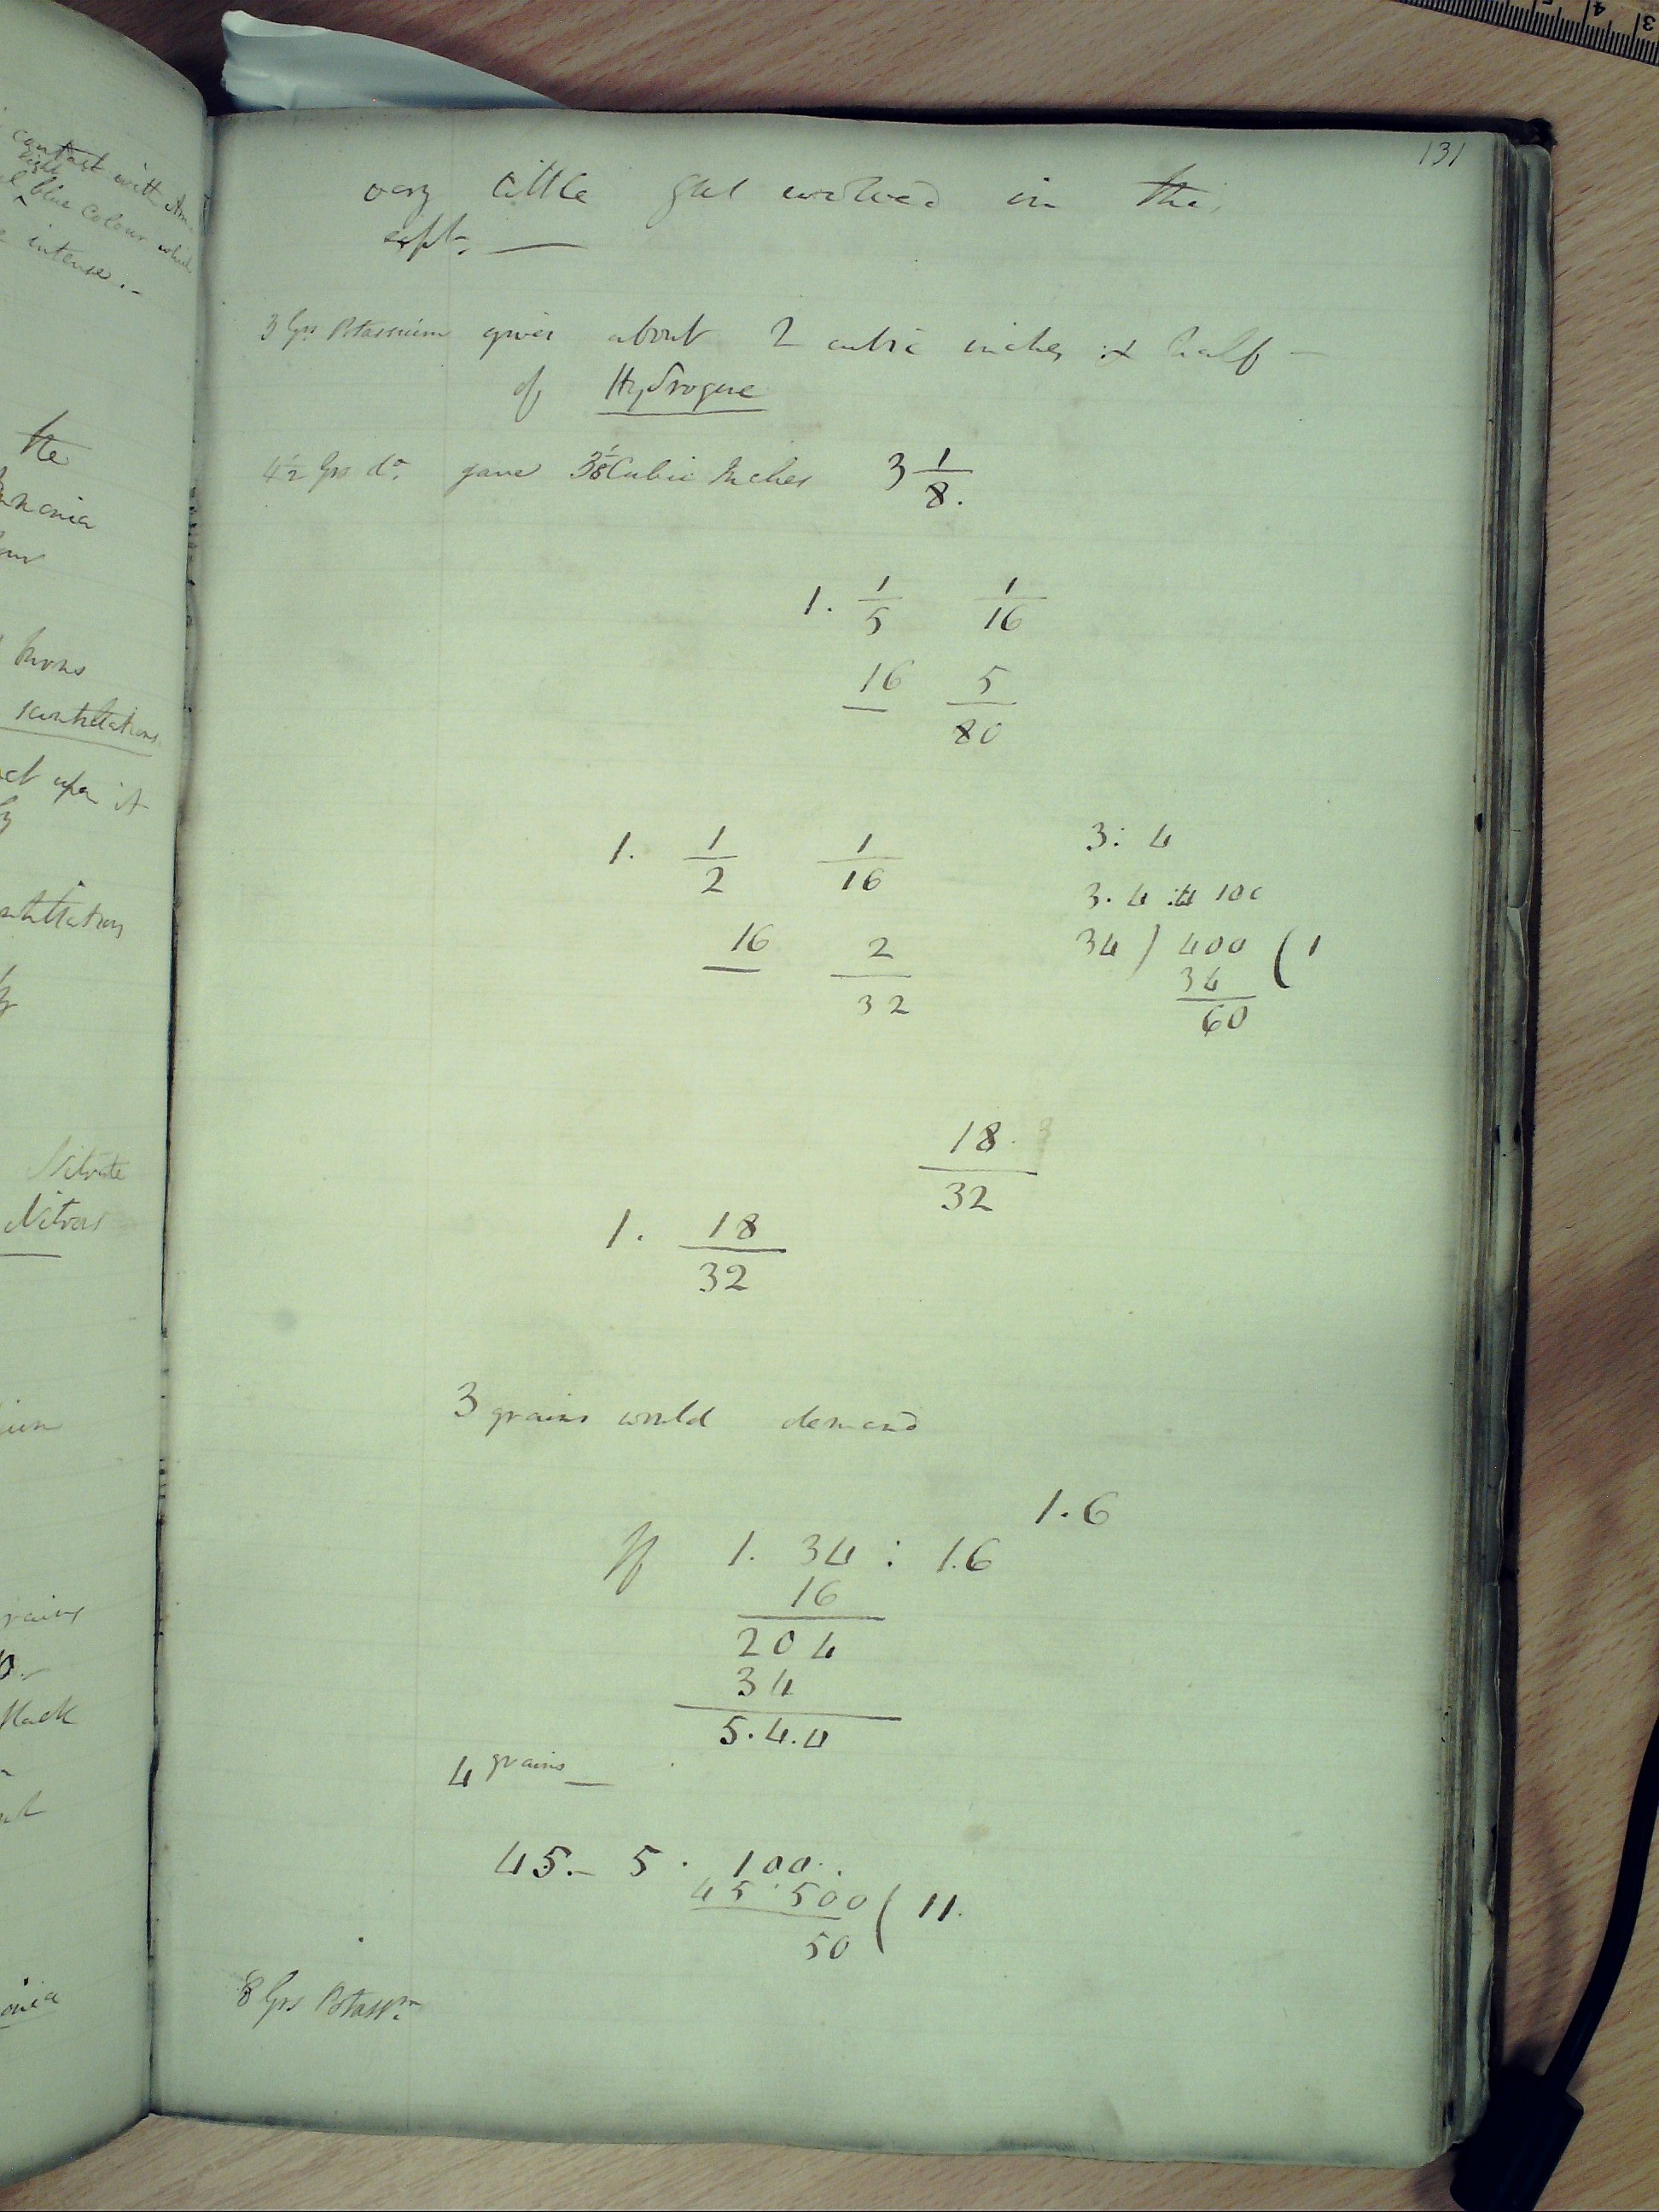 contact with Am
light
blue colour which
intense. -
the
mmonia
burns
scintillations
act upon it
scintillation
Nitrate
Nitrous
grains
black
onia
131
very little gas evolved in this
expt. —
3 Grs Potassium gives about 2 cubic inches & half —
of Hydrogene
4½ Grs do. gave 3⅛ Cubic Inches 3 1/8.
1. 1/5 1/16
16 5
80
1. 1/2 1/16
16 2
32
3 : 4
3. 4 :: 100
34 ) 400 ( 1
34
60
18
32
1. 18/32
3 grains would demand
1.6
If 1. 34 : 1.6
16
204
34
5.4.4
4 grains —
45.– 5 . 100..
45 . 500 ( 11.
50
8 Grs Potassm.